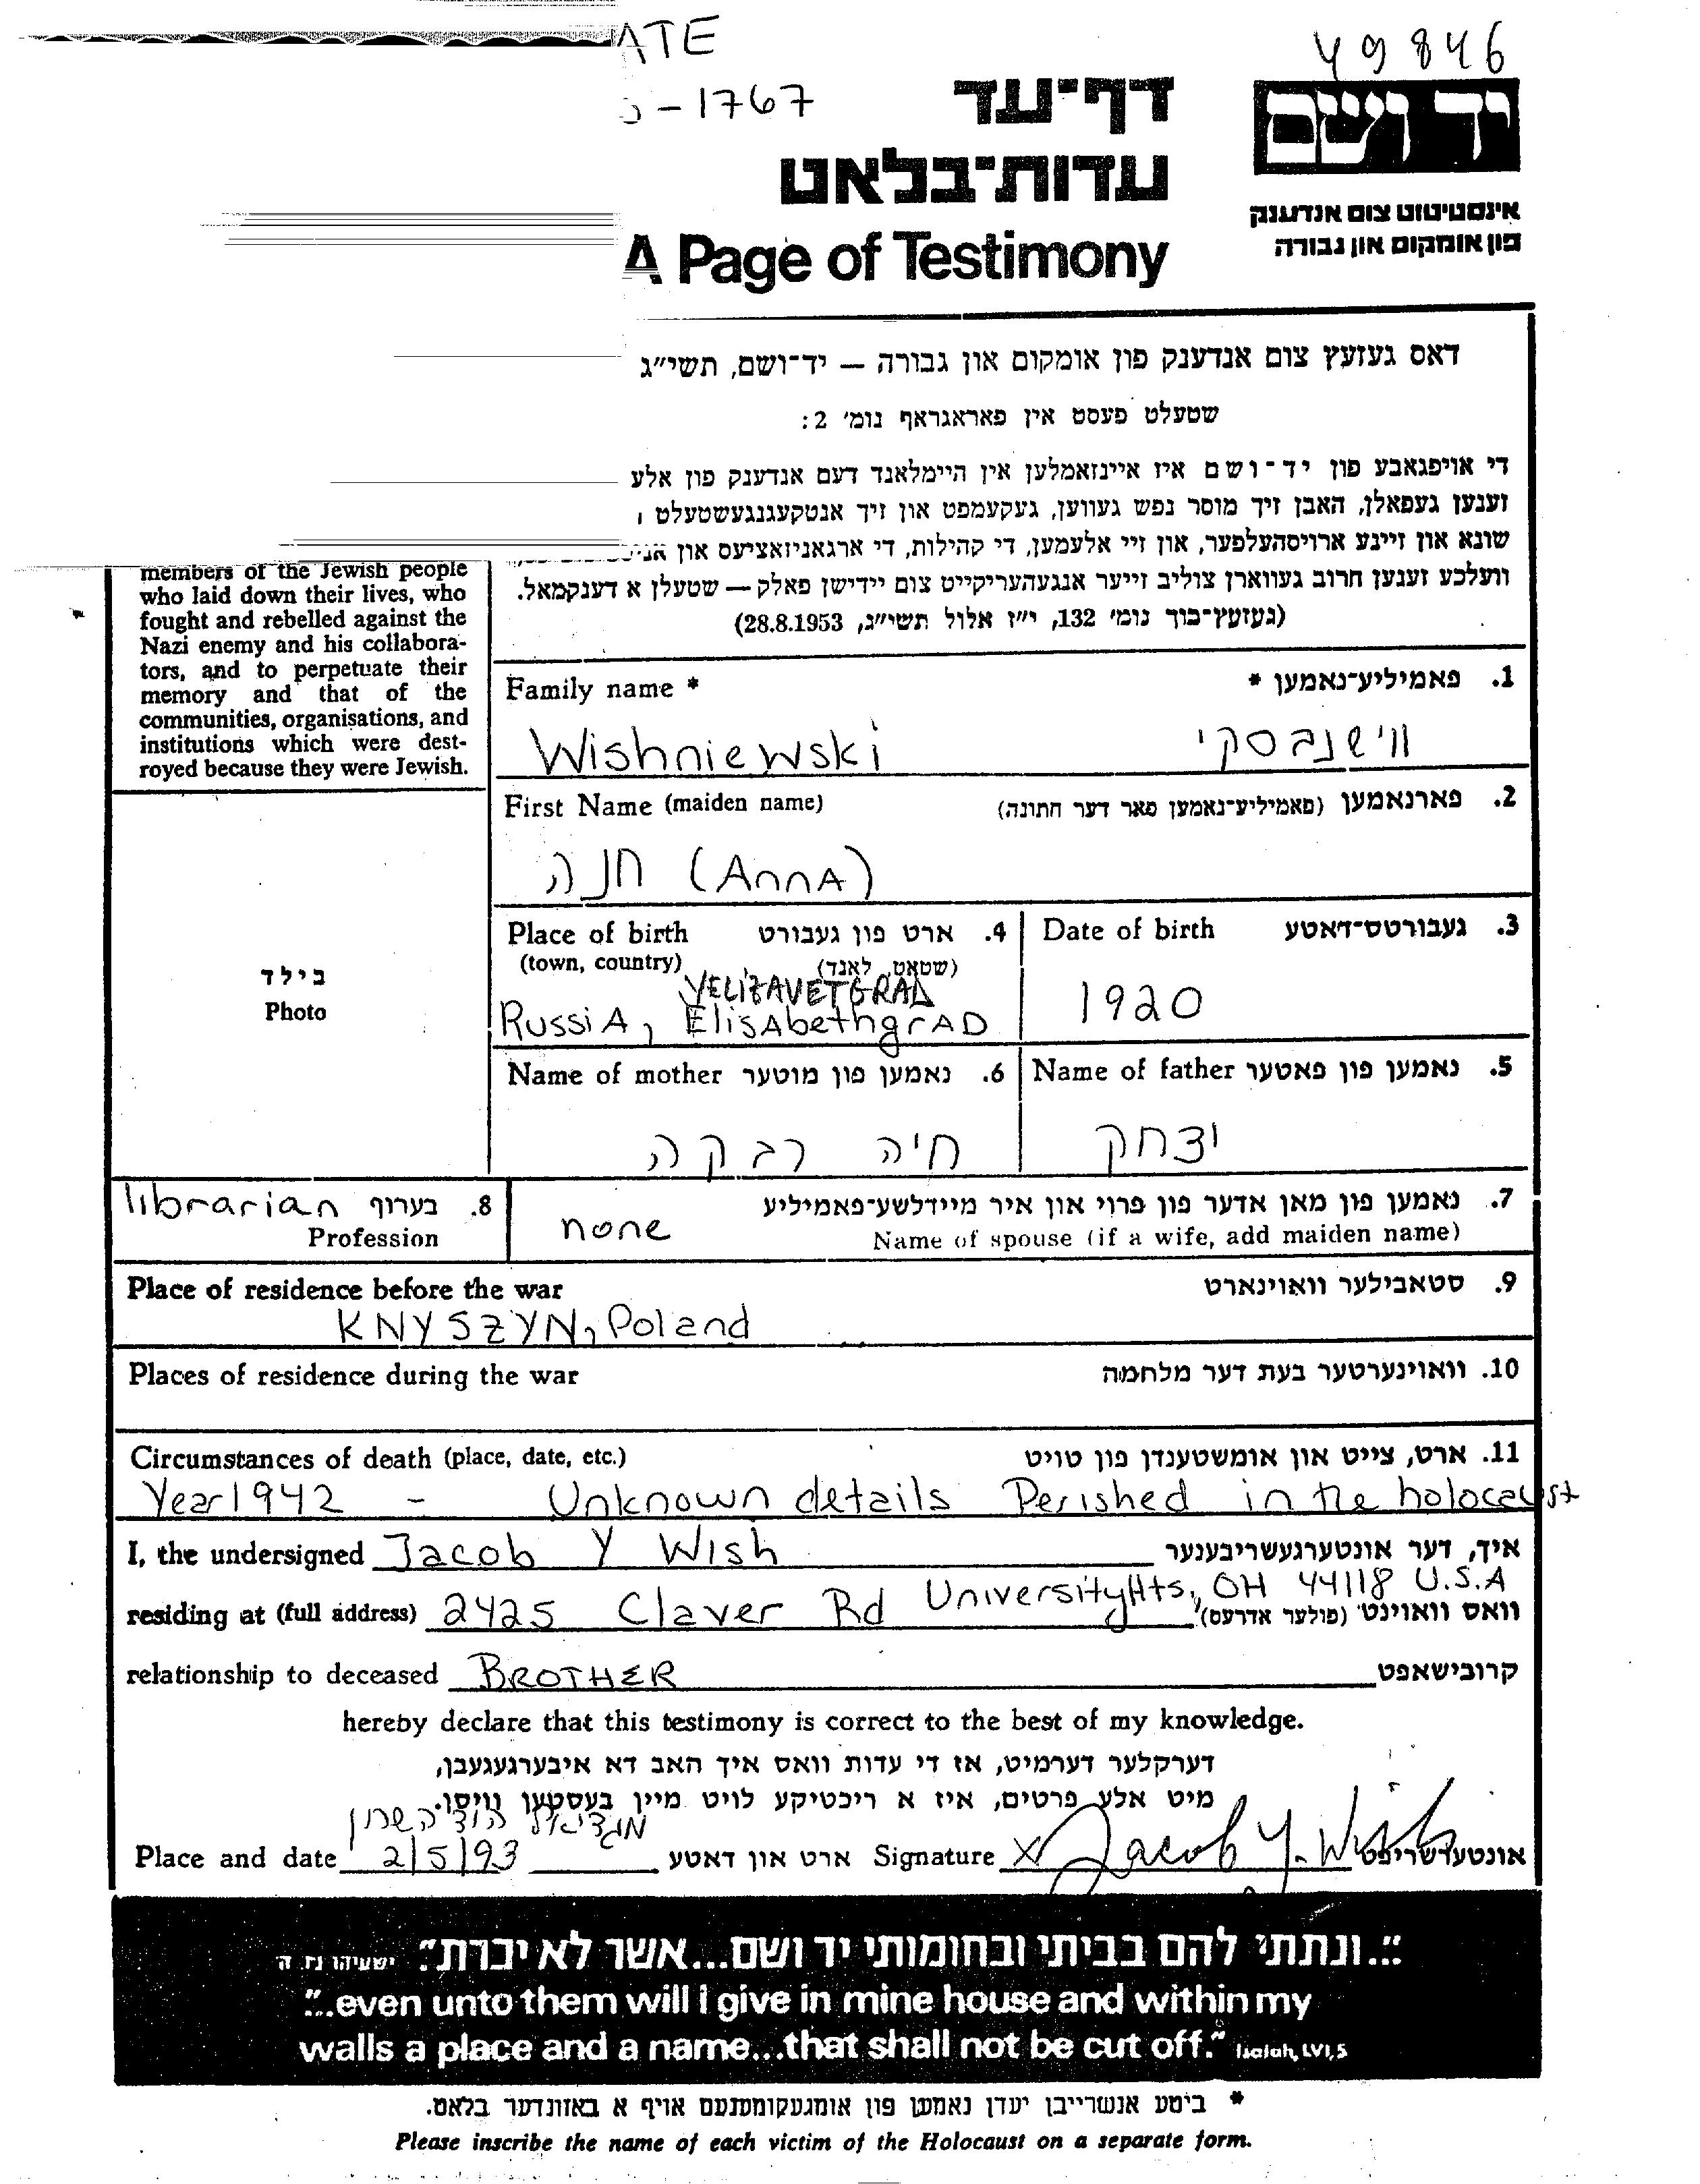 ATE
49846
-1767
דף־עד
יד ושם
עדות־בלאט
אינסטיטוט צום אנדענק
פון אומקום און גבורה
A Page of Testimony
דאס געזעץ צום אנדענק פון אומקום און גבורה — יד־ושם, תשי״ג
שטעלט פעסט אין פאראגראף נומ׳ 2:
די אויפגאבע פון יד־ושם איז איינזאמלען אין היימלאנד דעם אנדענק פון אלע
זענען געפאלן, האבן זיך מוסר נפש געווען, געקעמפט און זיך אנטקעגנגעשטעלט
שונא און זיינע ארויסהעלפער, און זיי אלעמען, די קהילות, די ארגאניזאציעס און
וועלכע זענען חרוב געווארן צוליב זייער אנגעהעריקייט צום יידישן פאלק — שטעלן א דענקמאל.
(געזעץ־בוך נומ׳ 132, י״ז אלול תשי״ג, 28.8.1953)
members of the Jewish people
who laid down their lives, who
fought and rebelled against the
Nazi enemy and his collabora-
tors, and to perpetuate their
memory and that of the
communities, organisations, and
institutions which were dest-
royed because they were Jewish.
Family name *
1. פאמיליע־נאמען *
Wishniewski
ווישנבסקי
First Name (maiden name)
2. פארנאמען (פאמיליע־נאמען פאר דער חתונה)
חנה (AnnA)
בילד
Photo
Place of birth
4. ארט פון געבורט
(town, country)
(שטאט, לאנד)
YELIZAVETGRAD
RussiA, ElisAbethgrAD
Date of birth
3. געבורטס־דאטע
1920
Name of mother 6. נאמען פון מוטער
חיה רבקה
Name of father 5. נאמען פון פאטער
יצחק
librarian
8. בערוף
Profession
7. נאמען פון מאן אדער פון פרוי און איר מיידלשע־פאמיליע
none
Name of spouse (if a wife, add maiden name)
Place of residence before the war
9. סטאבילער וואוינארט
KNYSZYN, Poland
Places of residence during the war
10. וואוינערטער בעת דער מלחמה
Circumstances of death (place, date, etc.)
11. ארט, צייט און אומשטענדן פון טויט
Year 1942 - Unknown details Perished in the holocaust
I, the undersigned Jacob Y Wish
איך, דער אונטערגעשריבענער
residing at (full address) 2425 Claver Rd University Hts, OH 44118 U.S.A
וואס וואוינט (פולער אדרעס)
relationship to deceased BROTHER
קרובישאפט
hereby declare that this testimony is correct to the best of my knowledge.
דערקלער דערמיט, אז די עדות וואס איך האב דא איבערגעגעבן,
מיט אלע פרטים, איז א ריכטיקע לויט מיין בעסטען וויסן.
מגדיאל הוד השרון
Place and date 2/5/93
ארט און דאטע
Signature X Jacob Y. Wish
אונטערשריפט
״...ונתתי להם בביתי ובחומותי יד ושם...אשר לא יכרת״ ישעיהו נו ה
"...even unto them will I give in mine house and within my
walls a place and a name...that shall not be cut off." Isaiah, LVI, 5
* ביטע אנשרייבן יעדן נאמען פון אומגעקומענעם אויף א באזונדער בלאט.
Please inscribe the name of each victim of the Holocaust on a separate form.